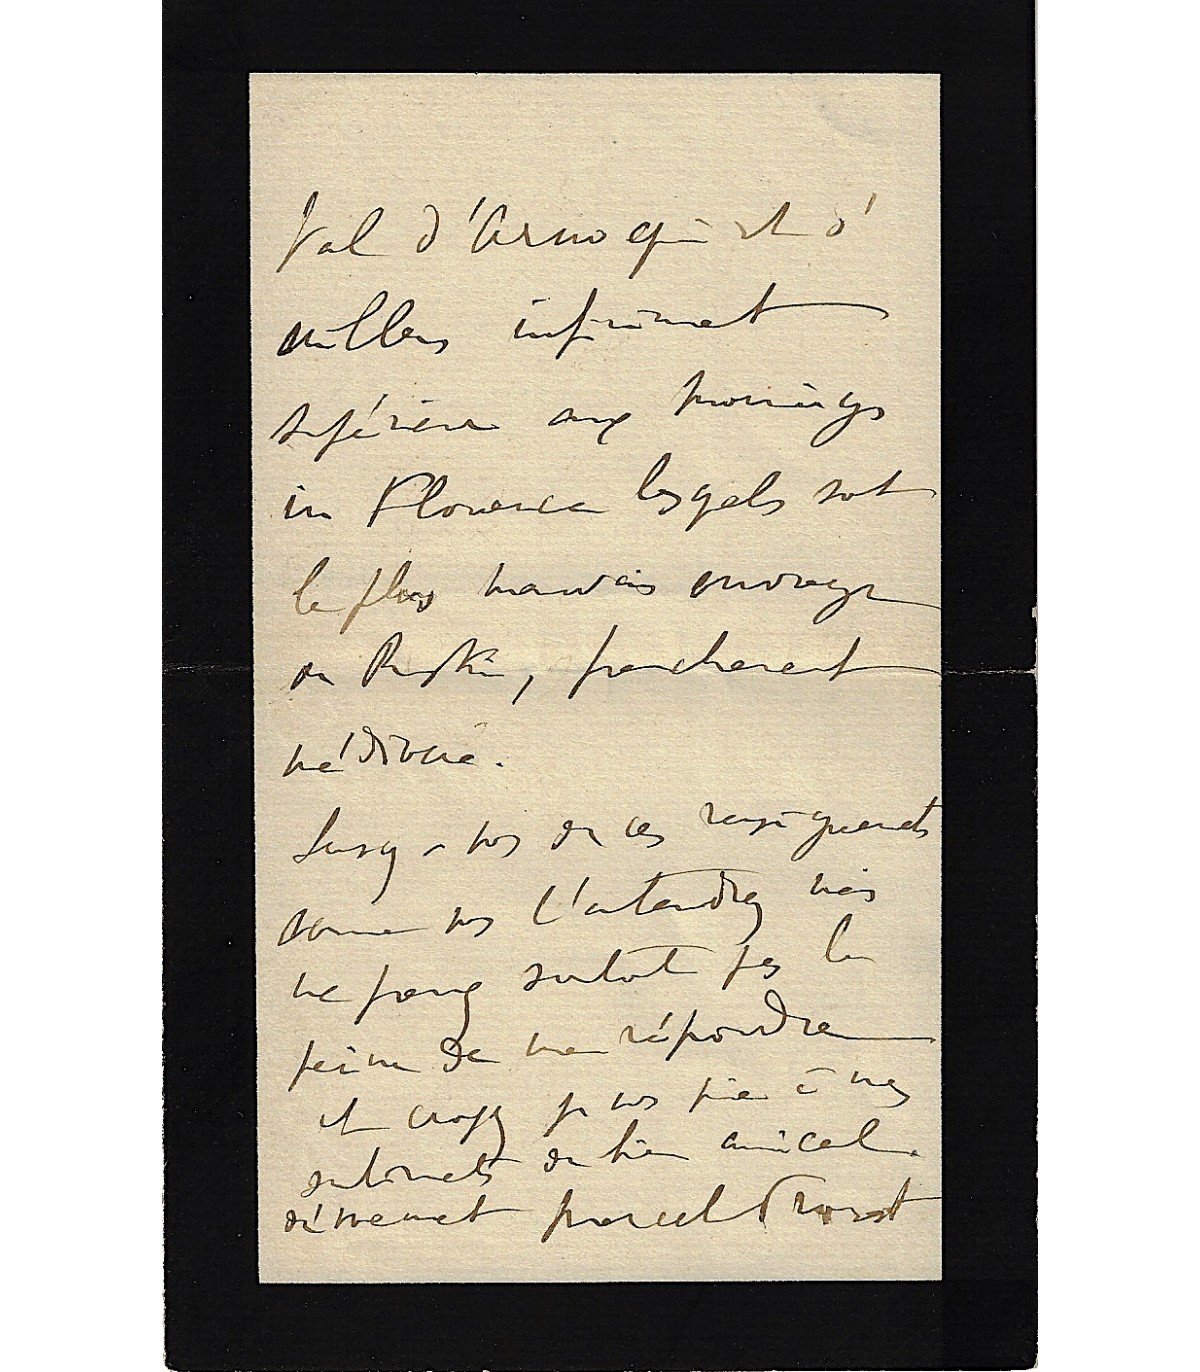 Val d'Arno qui est d'
ailleurs infiniment
supérieur aux Mornings
in Florence lesquels sont
le plus mauvais ouvrage
de Ruskin, franchement
médiocre.
Servez-vous de ces renseignements
comme vous l'entendrez mais
ne prenez surtout pas la
peine de me répondre
et croyez je vous prie à mes
sentiments de bien amical
dévouement Marcel Proust